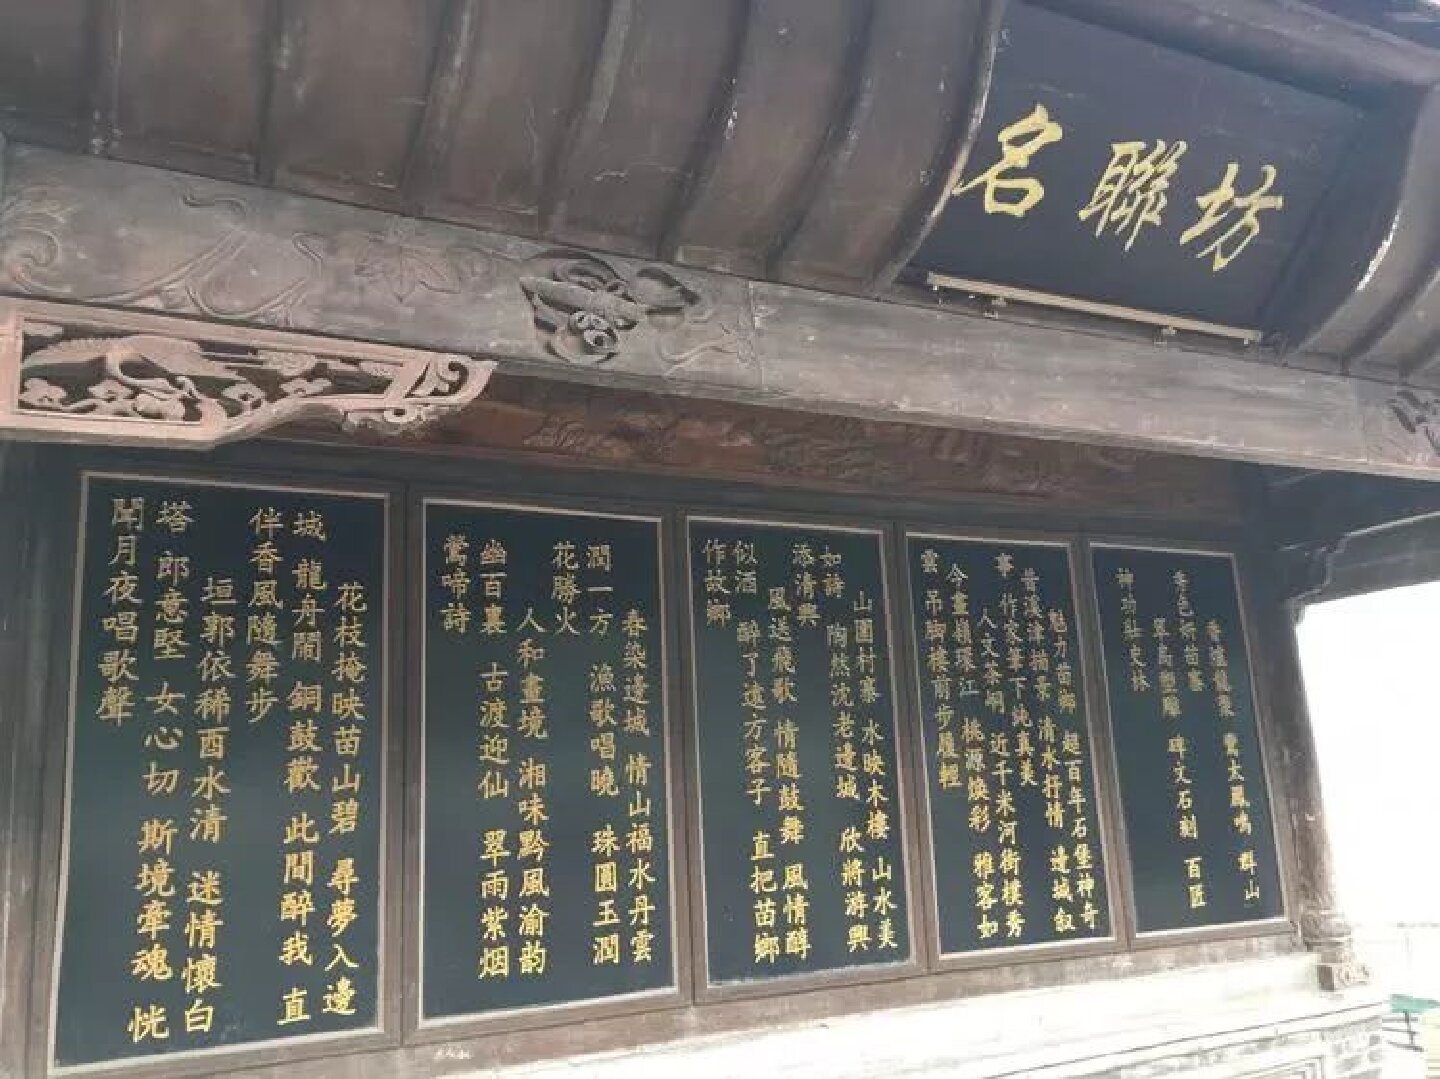 名聯坊
群山
秀色衍苗寨
碑文石刻 百匠
神功壯史林
魅力苗鄉 超百年石堡神奇
描景 清水抒情 邊城叙
事 作家筆下純真美
人文茶峒 近千米河街樸秀
今畫嶺環江 桃源煥彩 雅客如
雲 吊脚樓前步履輕
山圍村寨 水映木樓 山水美
如詩 陶然沈老邊城 欣將游興
添清興
風送飛歌 情隨鼓舞 風情醇
似酒 醉了遠方客子 直把苗鄉
作故鄉
春染邊城 情山福水丹雲
潤一方 漁歌唱曉 珠圓玉潤
花勝火
人和畫境 湘味黔風渝韵
幽百裏 古渡迎仙 翠雨紫烟
鶯啼詩
花枝掩映苗山碧 尋夢入邊
城 龍舟鬧 銅鼓歡 此間醉我 直
伴香風隨舞步
垣郭依稀酉水清 迷情懷白
塔 郎意堅 女心切 斯境牽魂 恍
聞月夜唱歌聲